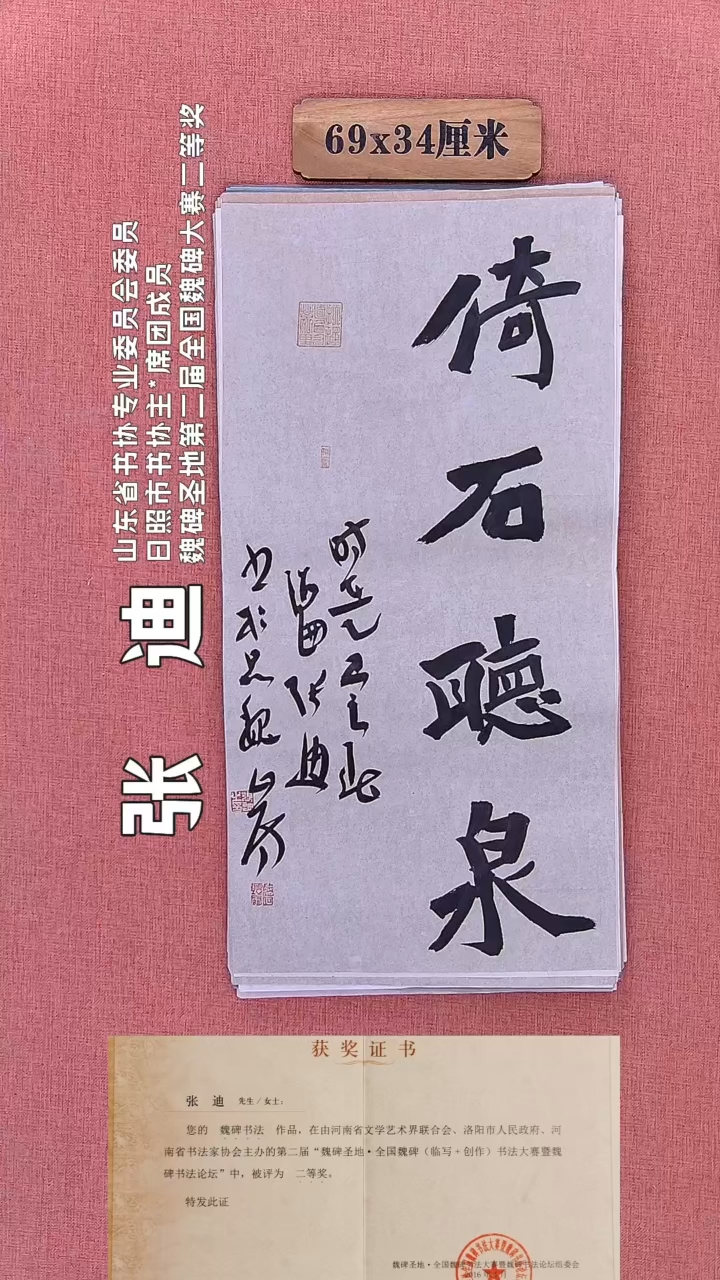 69x34厘米
倚石聽泉
海曲张迪
山东省书协专业委员会委员
日照市书协主*席团成员
魏碑圣地第二届全国魏碑大赛二等奖
张 迪
获奖证书
张 迪 先生/女士：
您的 魏碑书法 作品，在由河南省文学艺术界联合会、洛阳市人民政府、河
南省书法家协会主办的第二届“魏碑圣地·全国魏碑（临写+创作）书法大赛暨魏
碑书法论坛”中，被评为 二等奖。
特发此证
魏碑圣地·全国魏碑书法大赛暨魏碑书法论坛组委会